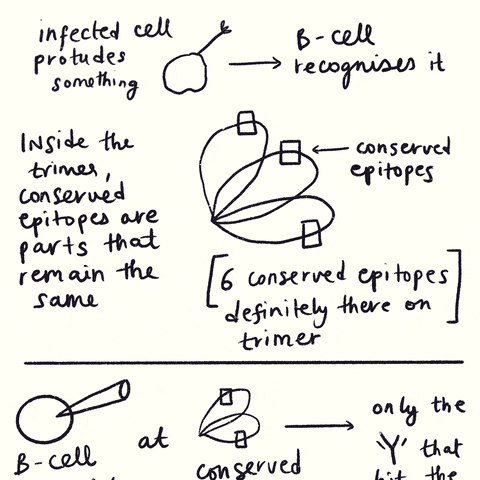 infected cell
protudes
something
B-cell
recognises it
Inside the
trimer,
conserved
epitopes are
parts that
remain the
same
conserved
epitopes
[6 conserved epitopes
definitely there on
trimer]
B-cell
at
conserved
only the
'Y' that